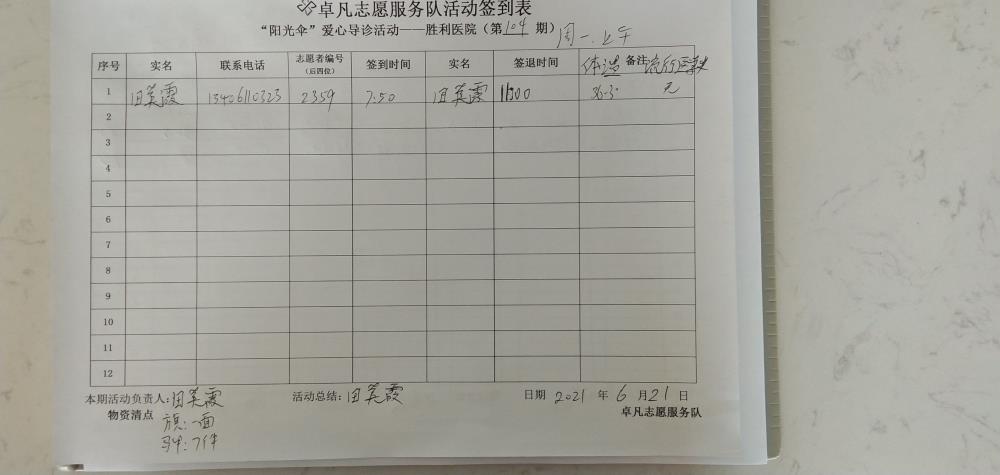 卓凡志愿服务队活动签到表
“阳光伞”爱心导诊活动——胜利医院（第104期）周一.上午
序号 实名 联系电话 志愿者编号（后四位） 签到时间 实名 签退时间 体温 备注 流行
1 田美霞 13406110323 2359 7:50 田美霞 11:00 36.3
2
3
4
5
6
7
8
9
10
11
12
本期活动负责人：田美霞 活动总结：田美霞 日期 2021 年 6 月 21 日
物资清点 卓凡志愿服务队
旗：一面
马甲：7件